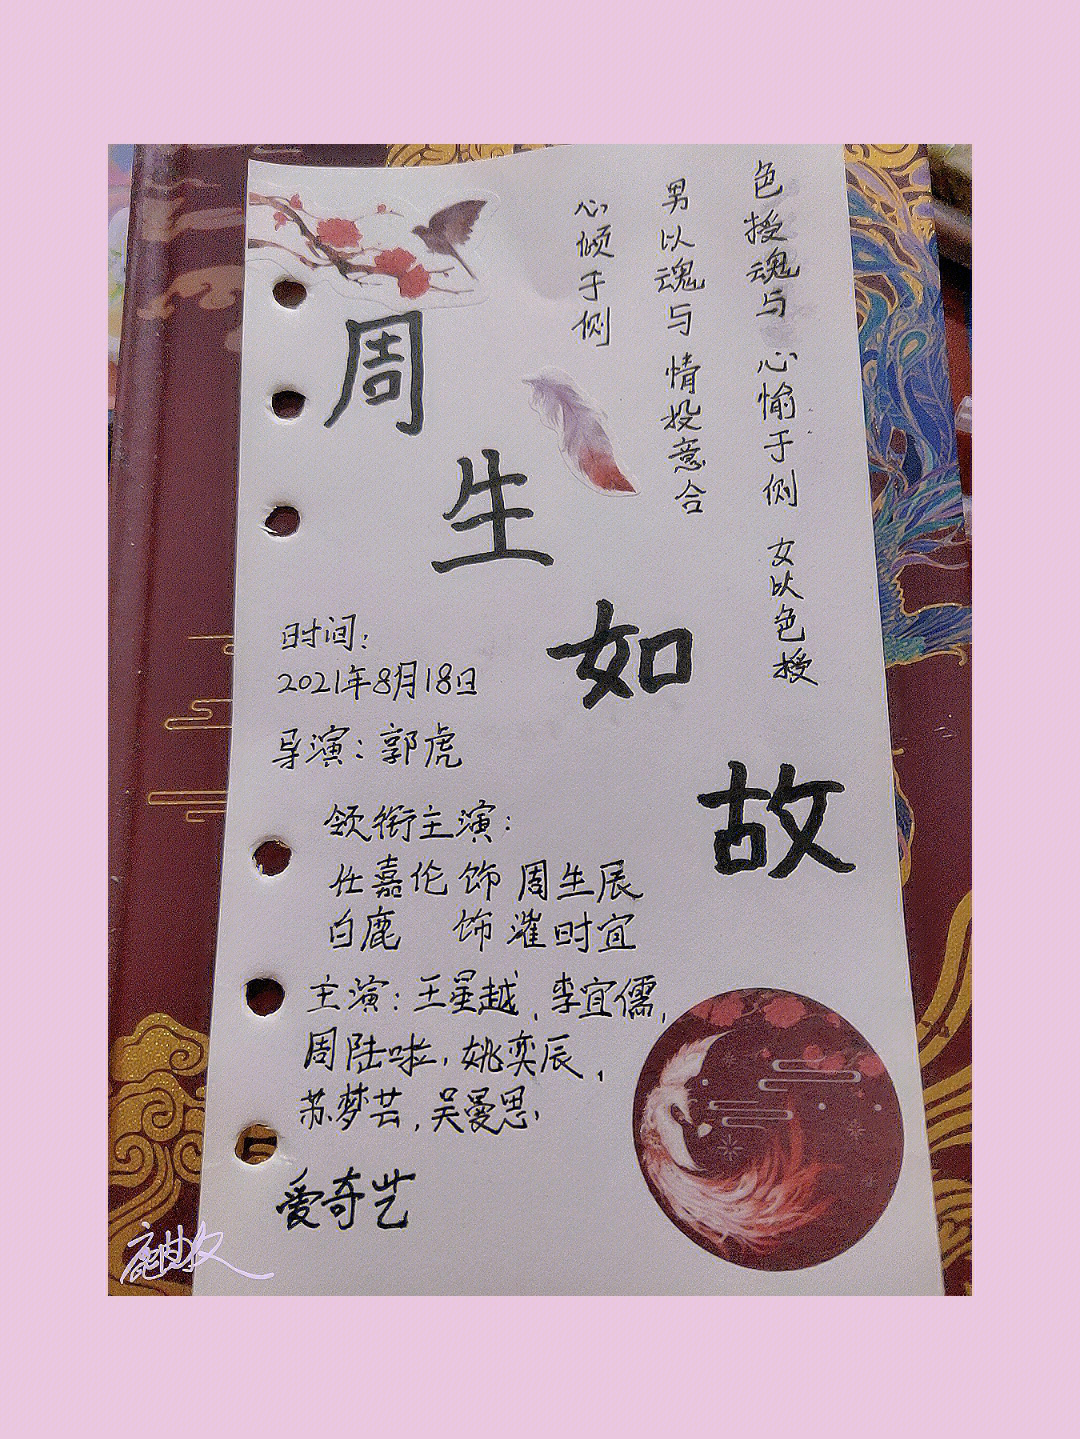 色授魂与 心愉于侧 女以色授
男以魂与 情投意合
心倾于侧
周生如故
时间:
2021年8月18日
导演:郭虎
领衔主演:
任嘉伦 饰 周生辰
白鹿 饰 漼时宜
主演:王星越,李宜儒,
周陆啦,姚奕辰,
苏梦芸,吴曼思.
爱奇艺